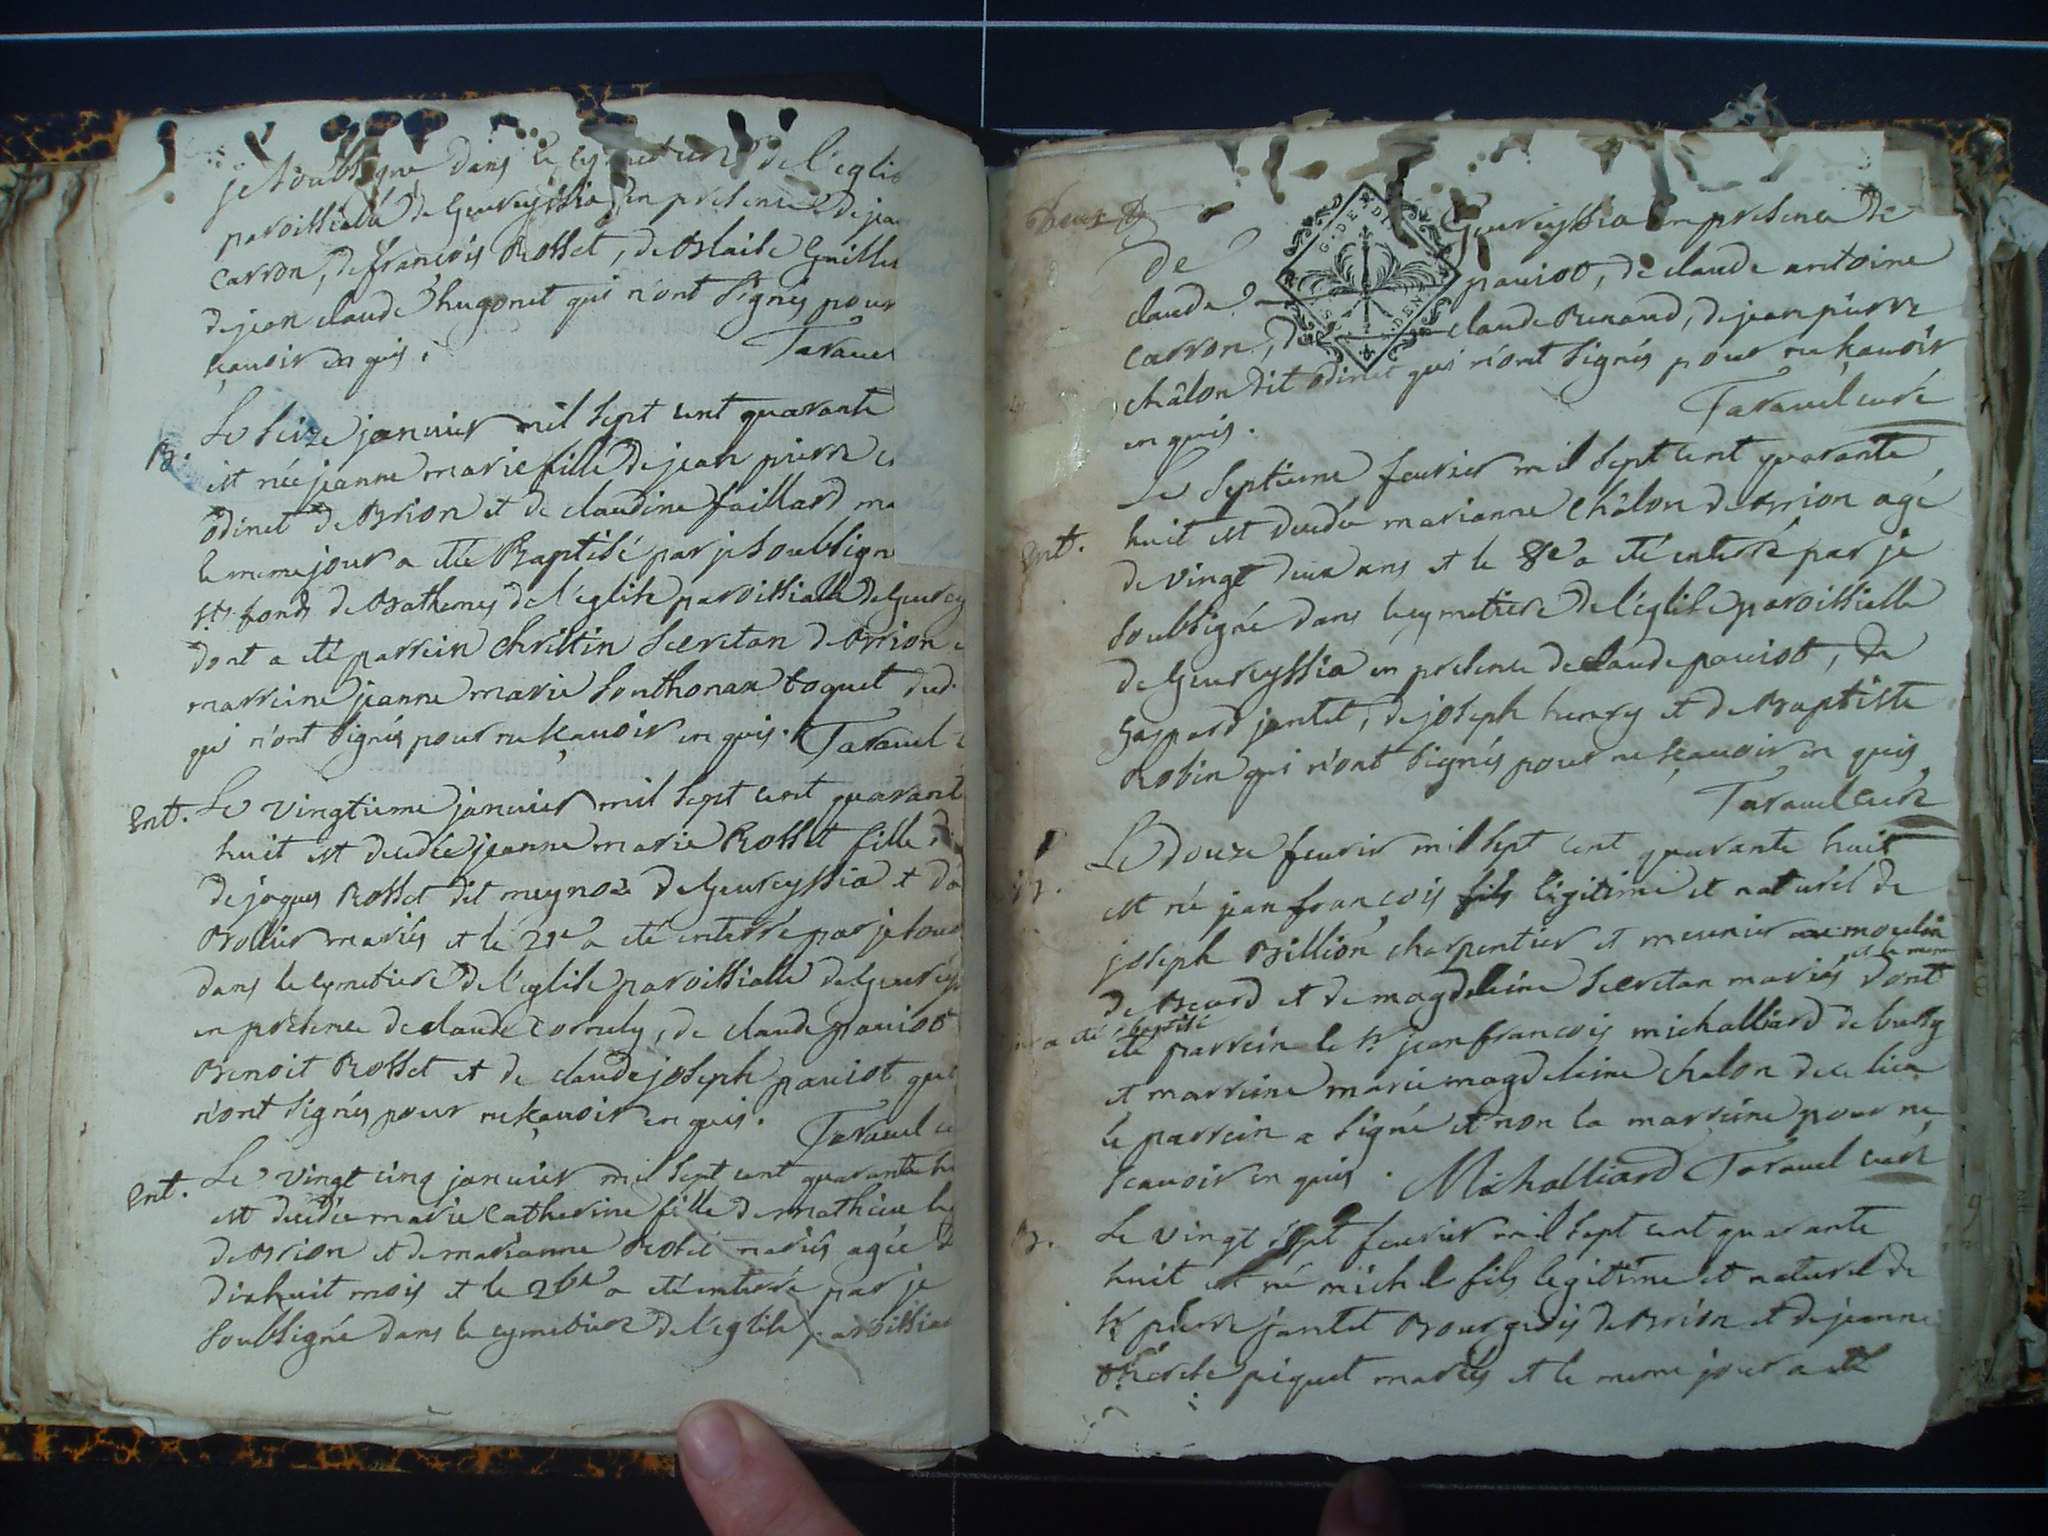 je soubsigné dans le cymetiere de l'eglis
paroissialle de Geureyssia en presence de jean
carron, de françois Rosset, de Blaise Guille
de jean claude hugonet qui n'ont signés pour
sçavoir en quis.
Taravel
Le seize janvier mil sept cent quarante
B.
est née jeanne marie fille de jean pierre
odinet de Brion et de claudine faillard ma
le meme jour a été Baptisé par je soubsigné
sts. fonds de Bathemes de l'eglise paroissialle de Geurey
dont a été parrein christin secretan de Brion
marreine jeanne marie Sonthonax Coquet dud.
qui n'ont signés pour ne sçavoir en quis. Taravel
Ent. Le vingtieme janvier mil sept cent quarant
huit est decedée jeanne marie Rosset fille
de jaques Rosset dit meynoz de Geureyssia et d
Bollier mariés et le 21e a été enterré par je soub
dans le cymetiere de l'eglise paroissialle de Geureys
en presence de claude Cornuly, de claude pauiot
Benoit Rosset et de claude joseph pauiot qui
n'ont signés pour ne sçavoir en quis.
Taravel cu
Ent. Le vingt cinq janvier mil sept cent quarante h
est decedée marie catherine fille de mathieu
de Brion et de marianne Robet mariés agée d
dixhuit mois et le 26e a été enterré par je
soubsigné dans le cymetiere de l'eglise paroissial
G. DEN
DE
de Geureyssia en presence de
claude pauiot, de claude antoine
carron, de claude Renaud, de jean pierre
châlon dit odinet qui n'ont signés pour ne sçavoir
en quis.
Taravel curé
Le septieme fevrier mil sept cent quarante
Ent. huit est decedée marianne châlon de Brion agé
de vingt deux ans et le 8e a été enterré par je
soubsigné dans le cymetiere de l'eglise paroissialle
de Geureyssia en presence de claude pauiot, de
Gaspard jantet, de joseph henry et de Baptiste
Robin qui n'ont signés pour ne sçavoir en quis
Taravel curé
Le douze fevrier mil sept cent quarante huit
B. est né jean françois fils legitime et naturel de
joseph Billion charpentier et meunier au moulin
de Beard et de magdeleine secretan mariés et le meme dont
a été baptisé
été parrein le sr. jean françois michalliard de bussy
et marreine marie magdeleine chalon de ce lieu
le parrein a signé et non la marreine pour ne
scavoir en quis. Michalliard Taravel curé
B. Le vingt sept fevrier mil sept cent quarante
huit est né michel fils legitime et naturel de
sr. pierre jantet Bourgeois de Brion et de jeanne
therese piquet mariés et le meme jour a été